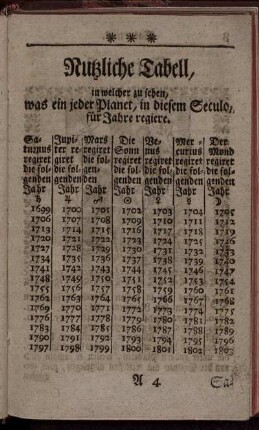 * * *
Nutzliche Tabell,
in welcher zu sehen,
was ein jeder Planet, in diesem Seculo,
für Jahre regiere.
Sa- Jupi- Mars Die Ve- Mer- Der
turnus ter re- regiret Sonn nus curius Mond
regiret giret die fol- regiret regiret regiret regiret
die fol- die fol- gen- die fol- die fol- die fol- die fol-
genden genden den genden genden genden genden
Jahr Jahr Jahr Jahr Jahr Jahr Jahr
♄ ♃ ♂ ☉ ♀ ☿ ☽
1699 1700 1701 1702 1703 1704 1705
1706 1707 1708 1709 1710 1711 1712
1713 1714 1715 1716 1717 1718 1719
1720 1721 1722 1723 1724 1725 1726
1727 1728 1729 1730 1731 1732 1733
1734 1735 1736 1737 1738 1739 1740
1741 1742 1743 1744 1745 1746 1747
1748 1749 1750 1751 1752 1753 1754
1755 1756 1757 1758 1759 1760 1761
1762 1763 1764 1765 1766 1767 1768
1769 1770 1771 1772 1773 1774 1775
1776 1777 1778 1779 1780 1781 1782
1783 1784 1785 1786 1787 1788 1789
1790 1791 1792 1793 1794 1795 1796
1797 1798 1799 1800 1801 1802 1803
A 4 Sa-